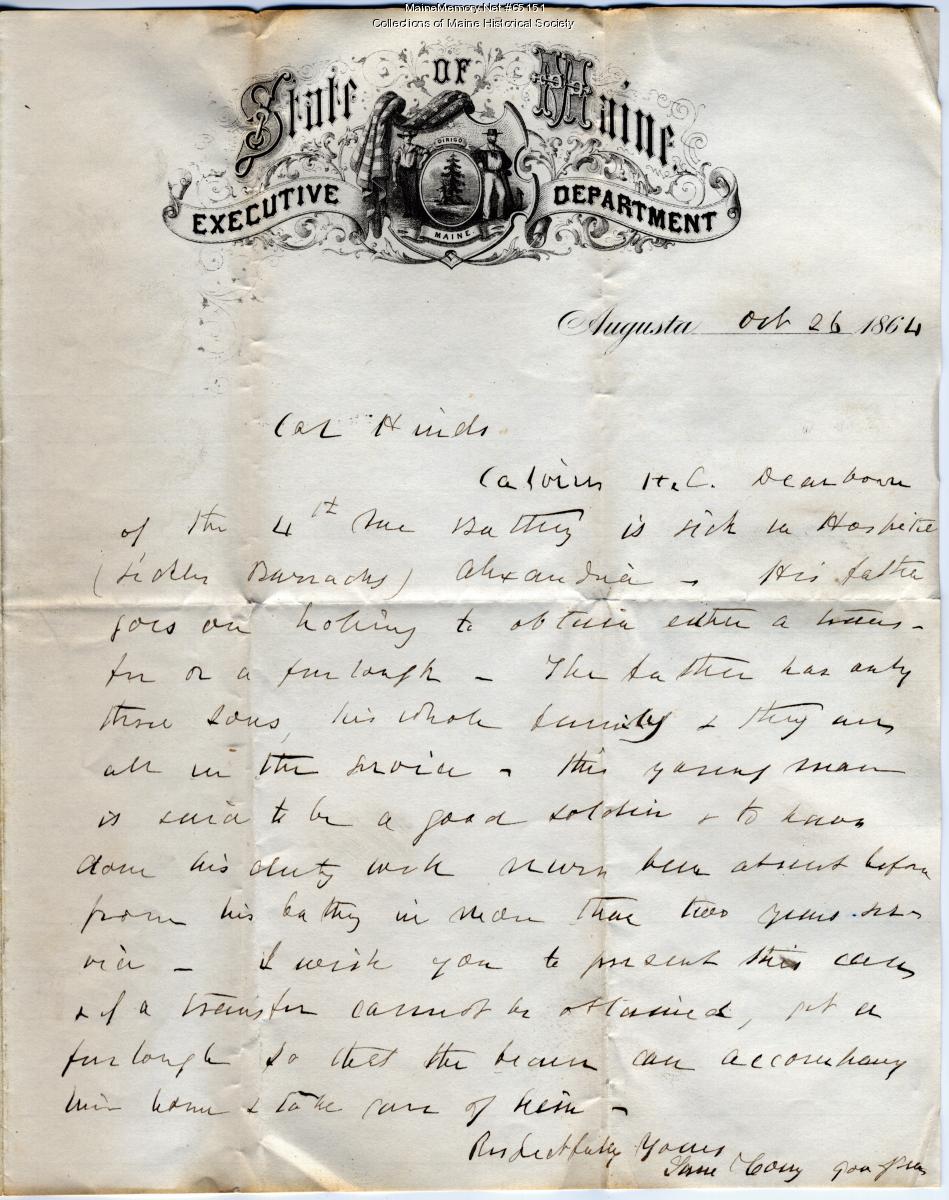 MaineMemory.Net #65151
Collections of Maine Historical Society
State OF Maine
DIRIGO
EXECUTIVE DEPARTMENT
MAINE
Augusta Oct 26 1864
Col Hinds
Calvin H.C. Dearborn
of the 4th Me Battery is sick in Hospital
(Sickles Barracks) Alexandria - His father
goes on hoping to obtain either a trans-
fer or a furlough - The father has only
three sons, his whole family & they are
all in the service - this young man
is said to be a good soldier & to have
done his duty well never been absent before
from his battery in more than two years ser
vice - I wish you to present this case
& if a transfer cannot be obtained, get a
furlough so that the bearer can accompany
him home & take care of him -
Respectfully Yours
Saml Cony